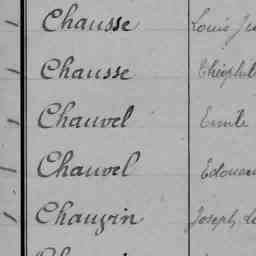 Chausse Louis
Chausse Théophile
Chauvel Emile
Chauvel Edouard
Chauvin Joseph